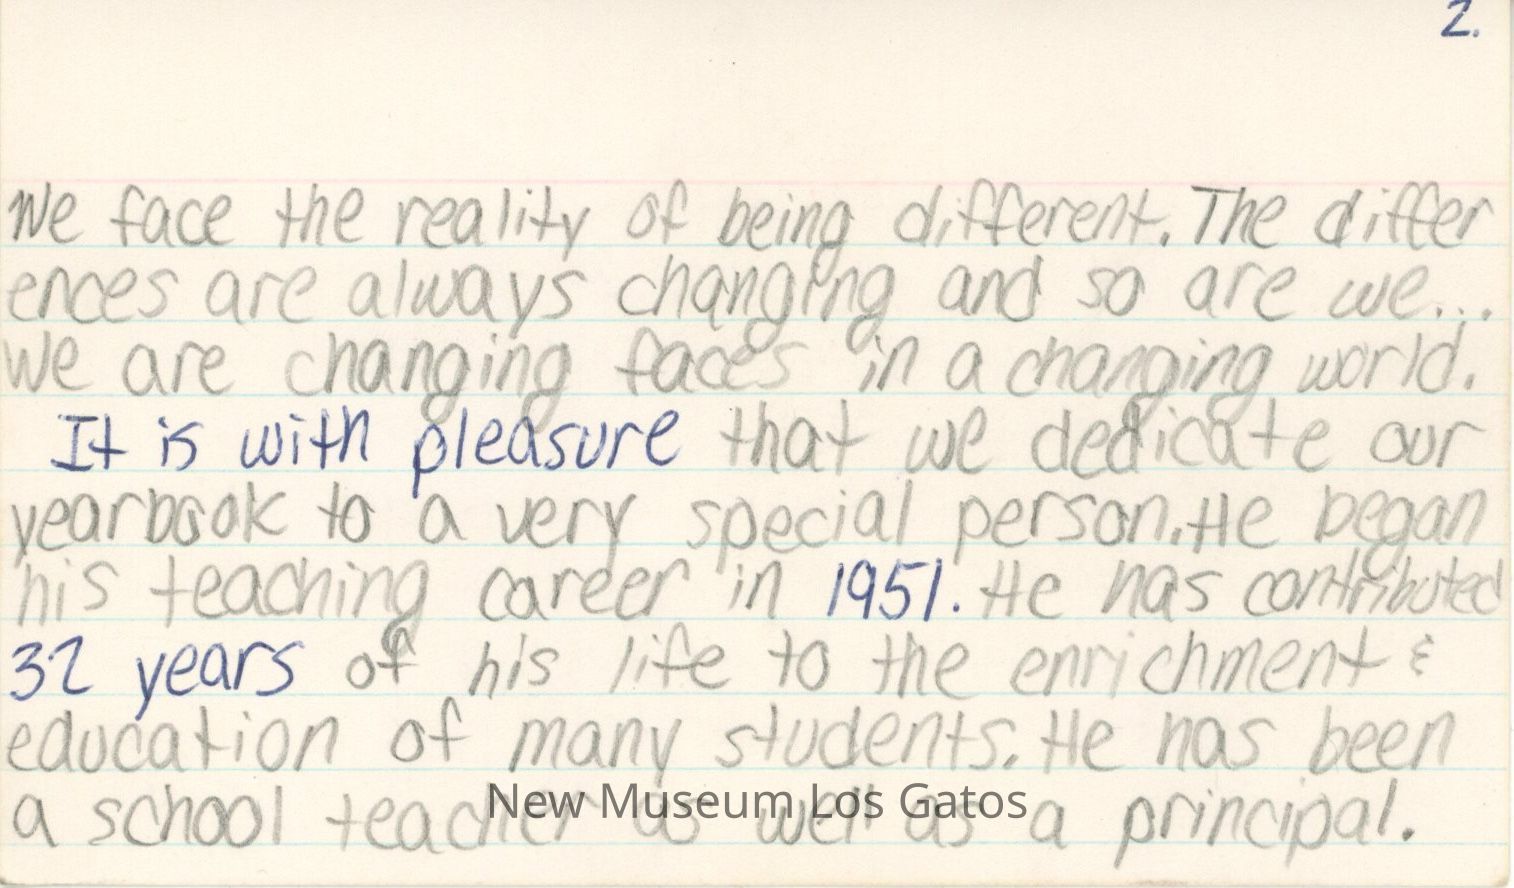 2.
We face the reality of being different. The differ
ences are always changing and so are we...
We are changing faces in a changing world.
It is with pleasure that we dedicate our
yearbook to a very special person. He began
his teaching career in 1951. He has contributed
32 years of his life to the enrichment &
education of many students. He has been
a school teacher as well as a principal.
New Museum Los Gatos